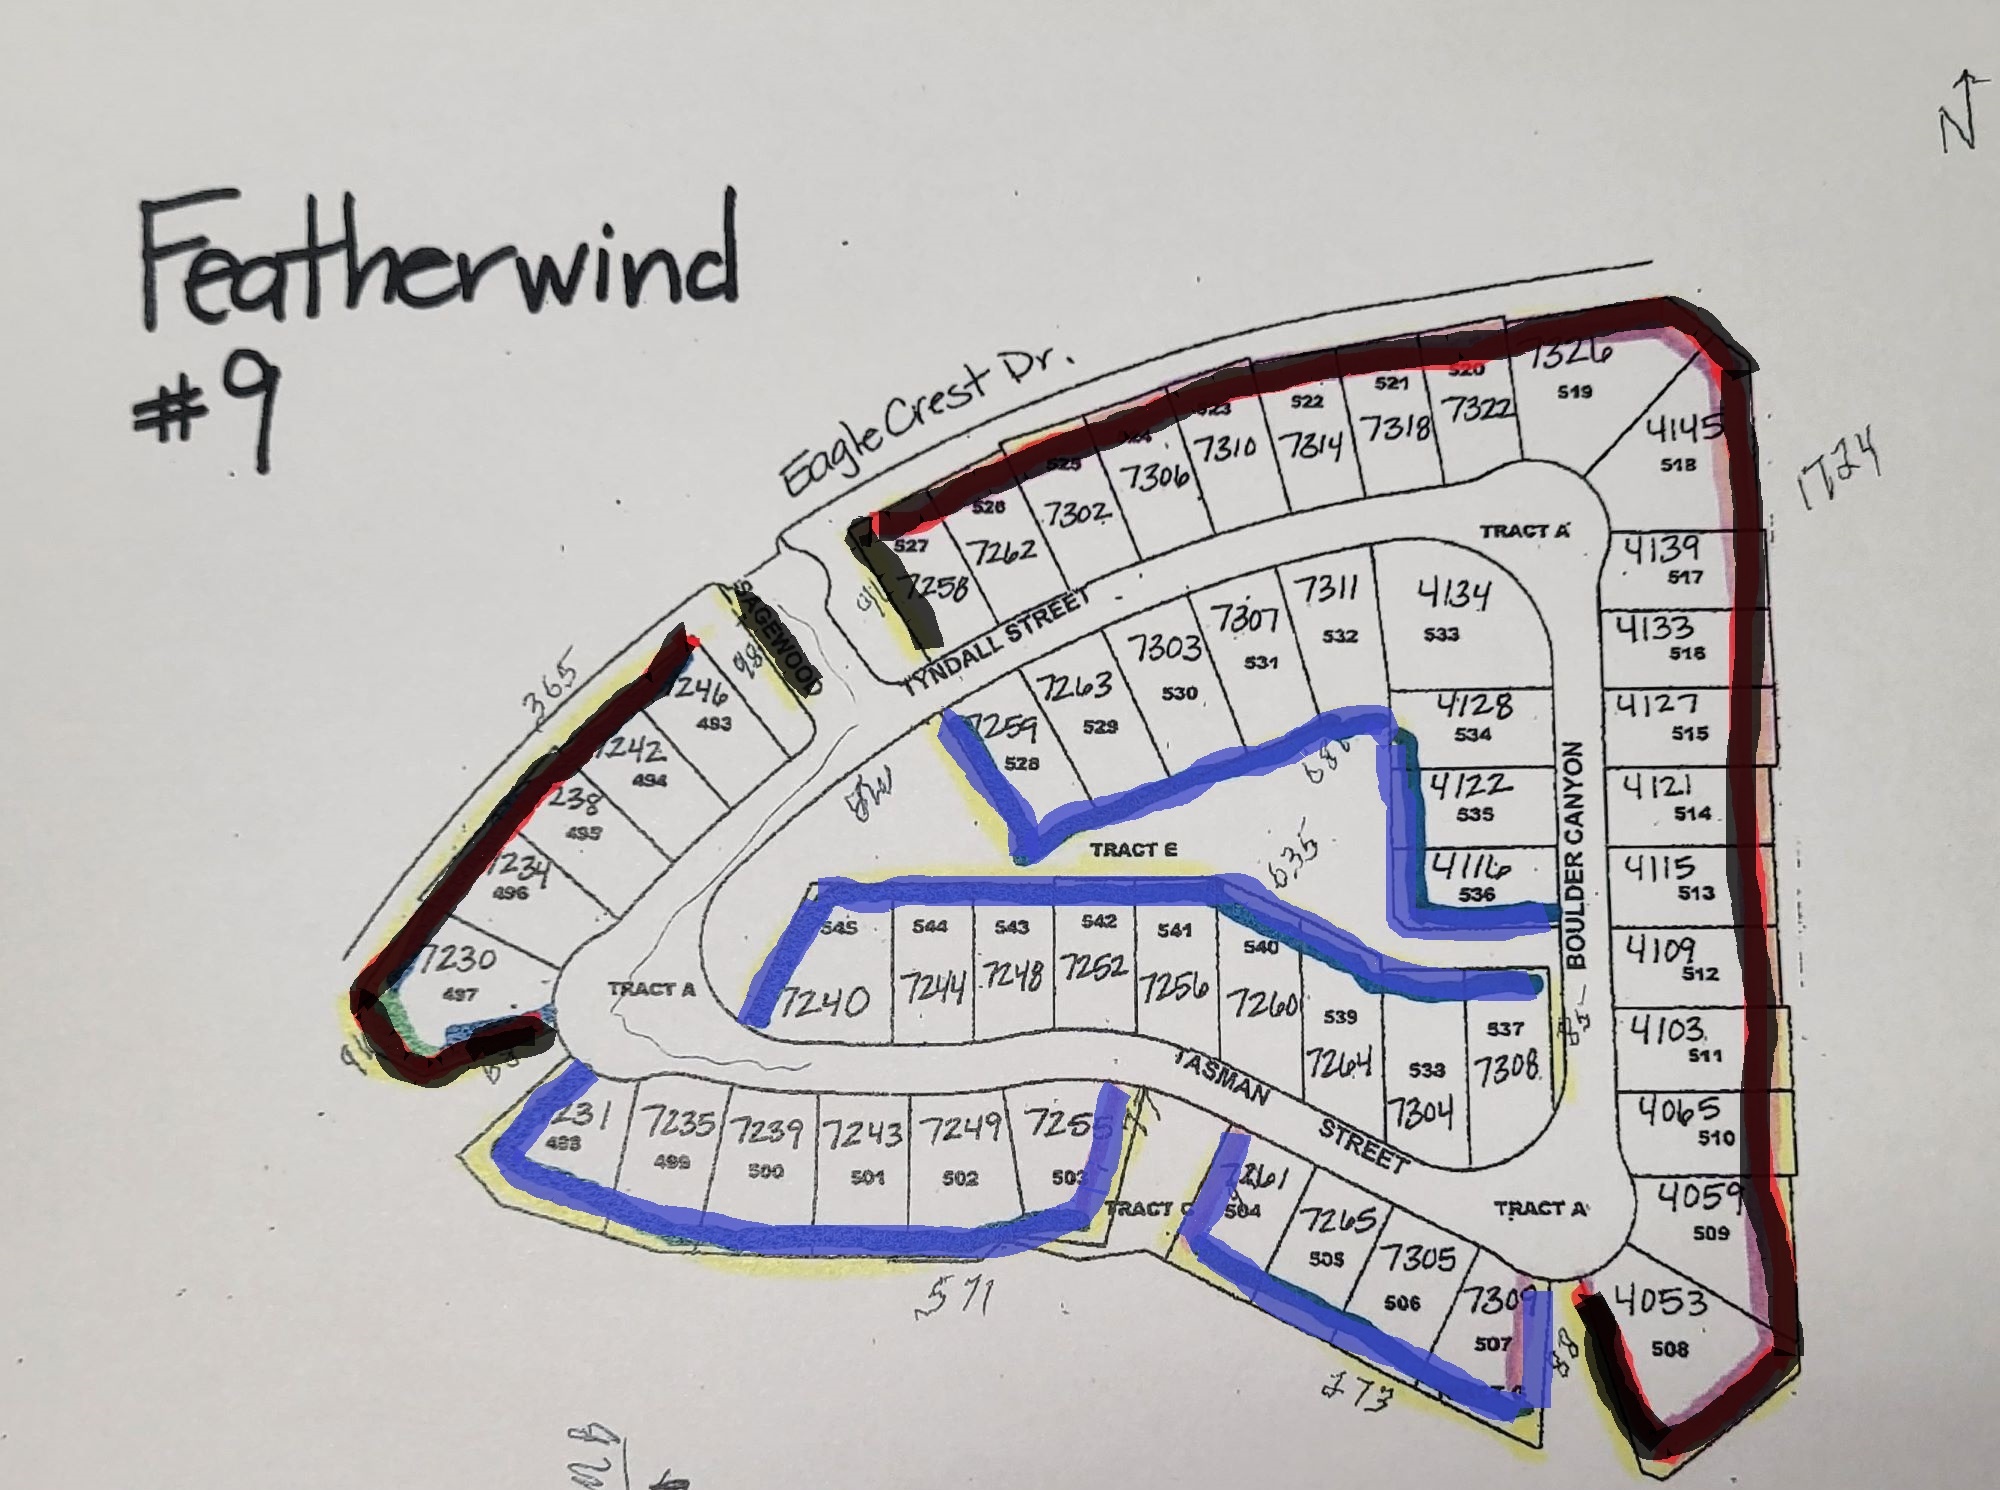 N
Featherwind
#9
Eagle Crest Dr.
7326
519
520
7322
521
7318
522
7314
523
7310
524
7306
525
7302
526
7262
527
7258
4145
518
1724
TRACT A
4139
517
4133
516
4127
515
4121
514
4115
513
4109
512
4103
511
4065
510
4059
509
4053
508
SAGEWOOD
98
TYNDALL STREET
7311
532
4134
533
7307
531
7303
530
7263
529
7259
528
4128
534
4122
535
4116
536
BOULDER CANYON
365
7246
493
7242
494
238
495
7234
496
7230
497
TRACT E
635
545
7240
544
7244
543
7248
542
7252
541
7256
540
7260
539
7264
538
7304
537
7308
85
TRACT A
TASMAN STREET
231
498
7235
499
7239
500
7243
501
7249
502
7255
503
TRACT C
571
7261
504
7265
505
7305
506
7309
507
TRACT A
88
273